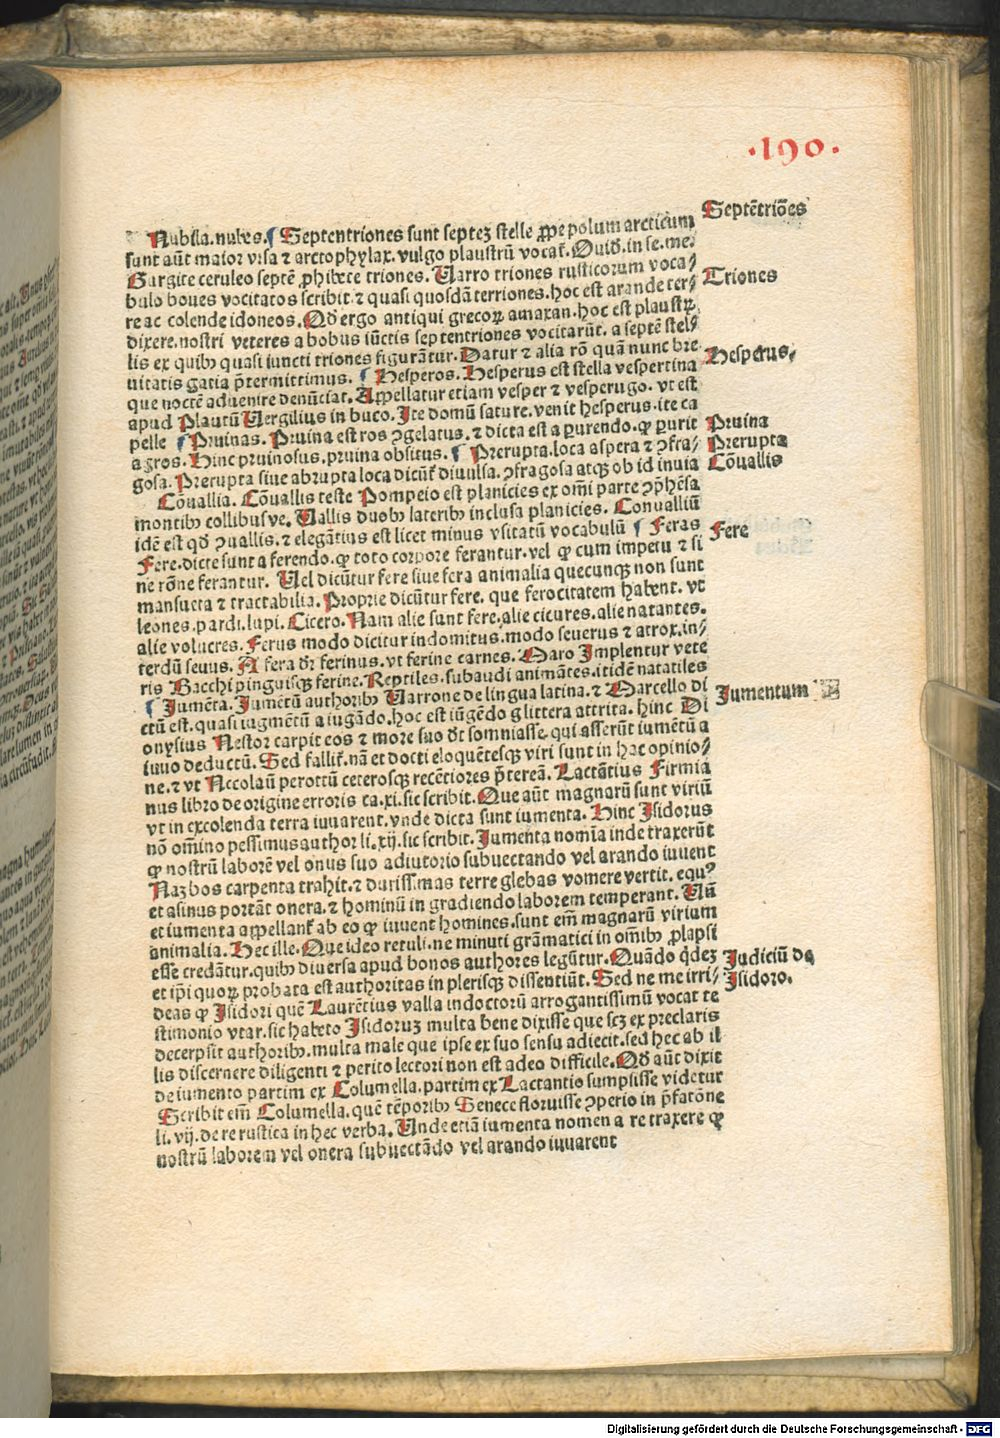 .190.
Nubila. nubes. ¶ Septentriones sunt septeȝ stelle ꝓpe polum arcticum
Septētriões
sunt aūt maior vrsa ⁊ arctophylax. vulgo plaustrū vocat᷑. Ouiđ. in se. me.
Gurgite ceruleo septē ꝓhibete triones. Uarro triones rusticorum voca⸗
Triones
bulo boues vocitatos scribit. ⁊ quasi quosdā terriones. hoc est arande ter⸗
re ac colende idoneos. Qđ ergo antiqui grecoꝝ amaxan. hoc est plaustꝝ
dixere. nostri veteres a bobus iūctis septentriones vocitarūt. a septē stel⸗
lis ex quibꝰ quasi iuncti triones figurātur. Datur ⁊ alia rō quā nunc bre
Hesperus.
uitatis gatia p̄termittimus. ¶ Hesperos. Hesperus est stella vespertina
que noctē aduenire denūciat. Appellatur etiam vesper ⁊ vesperugo. vt est
apud Plautū Uergilius in buco. Ite domū sature. venit hesperus. ite ca
pelle ¶ Pruinas. Pruina est ros ꝯgelatus. ⁊ dicta est a purendo. ꝙ purit
Pruina
agros. Hinc pruinosus. pruina obsitus. ¶ Prerupta. loca aspera ⁊ ꝯfra⸗
Prerupta
gosa. Prerupta siue abrupta loca dicūt᷑ diuulsa. ꝯfragosa atqꝫ ob id inuia
Cōuallis
Cōuallia. Cōuallis teste Pompeio est planicies ex om̄i parte ꝯp̄hēsa
montibꝰ collibusve. Uallis duobꝰ lateribꝰ inclusa planicies. Conuallium
idē est qđ ꝯuallis. ⁊ elegātius est licet minus vsitatū vocabulū ¶ Feras
Fere
Fere. dicte sunt a ferendo. ꝙ toto corpore ferantur. vel ꝙ cum impetu ⁊ si
ne rōne ferantur. Uel dicūtur fere siue fera animalia quecunqꝫ non sunt
mansueta ⁊ tractabilia. Proprie dicūtur fere. que ferocitatem habent. vt
leones. pardi. lupi. Cicero. Nam alie sunt fere. alie cicures. alie natantes.
alie volucres. Ferus modo dicitur indomitus. modo seuerus ⁊ atrox. in⸗
terdū seuus. A fera dr̄ ferinus. vt ferine carnes. Maro Implentur vete
ris Bacchi pinguisqꝫ ferine. Reptiles. subaudi animātes. itidē natatiles
¶ Jumēta. Jumētū authoribꝰ Uarrone de lingua latina. ⁊ Marcello di
Jumentum
ctū est. quasi iugmētū a iugādo. hoc est iūgēdo g littera attrita. hinc Di
onysius Nestor carpit eos ⁊ more suo dt̄ somniasse. qui asserūt iumētū a
iuuo deductū. Sed fallit᷑. nā et docti eloquētesqꝫ viri sunt in hac opinio⸗
ne. ⁊ vt Nicolaū perottū ceterosqꝫ recētiores p̄tereā. Lactātius Firmia
nus libro de origine erroris ca. xi. sic scribit. Que aūt magnarū sunt viriū
vt in excolenda terra iuuarent. vnde dicta sunt iumenta. Hinc Isidorus
nō om̄ino pessimus author li. xij. sic scribit. Jumenta nomīa inde traxerūt
ꝙ nostrū laborē vel onus suo adiutorio subuectando vel arando iuuent
Naȝ bos carpenta trahit. ⁊ durissimas terre glebas vomere vertit. equꝰ
et asinus portāt onera. ⁊ hominū in gradiendo laborem temperant. Uñ
et iumenta appellant᷑ ab eo ꝙ iuuent homines. sunt em̄ magnarū virium
animalia. Hec ille. Que ideo retuli. ne minuti grāmatici in om̄ibꝰ ꝓlapsi
esse credātur. quibꝰ diuersa apud bonos authores legūtur. Quādo q̇dez
Judiciū de
et ip̄i quoꝝ probata est authoritas in plerisqꝫ dissentiūt. Sed ne me irri⸗
Isidoro.
deas ꝙ Isidori quē Laurētius valla indoctorū arrogantissimū vocat te
stimonio vtar. sic habeto Isidoruȝ multa bene dixisse que scȝ ex preclaris
decerpsit authoribꝰ. multa male que ipse ex suo sensu adiecit. sed hec ab il
lis discernere diligenti ⁊ perito lectori non est adeo difficile. Qđ aūt dixit
de iumento partim ex Columella. partim ex Lactantio sumpsisse videtur
Scribit em̄ Columella. quē tēporibꝰ Senece floruisse ꝯperio in p̄fatōne
li. vij. de re rustica in hec verba. Unde etiā iumenta nomen a re traxere ꝙ
nostrū laborem vel onera subuectādo vel arando iuuarent
Digitalisierung gefördert durch die Deutsche Forschungsgemeinschaft - DFG